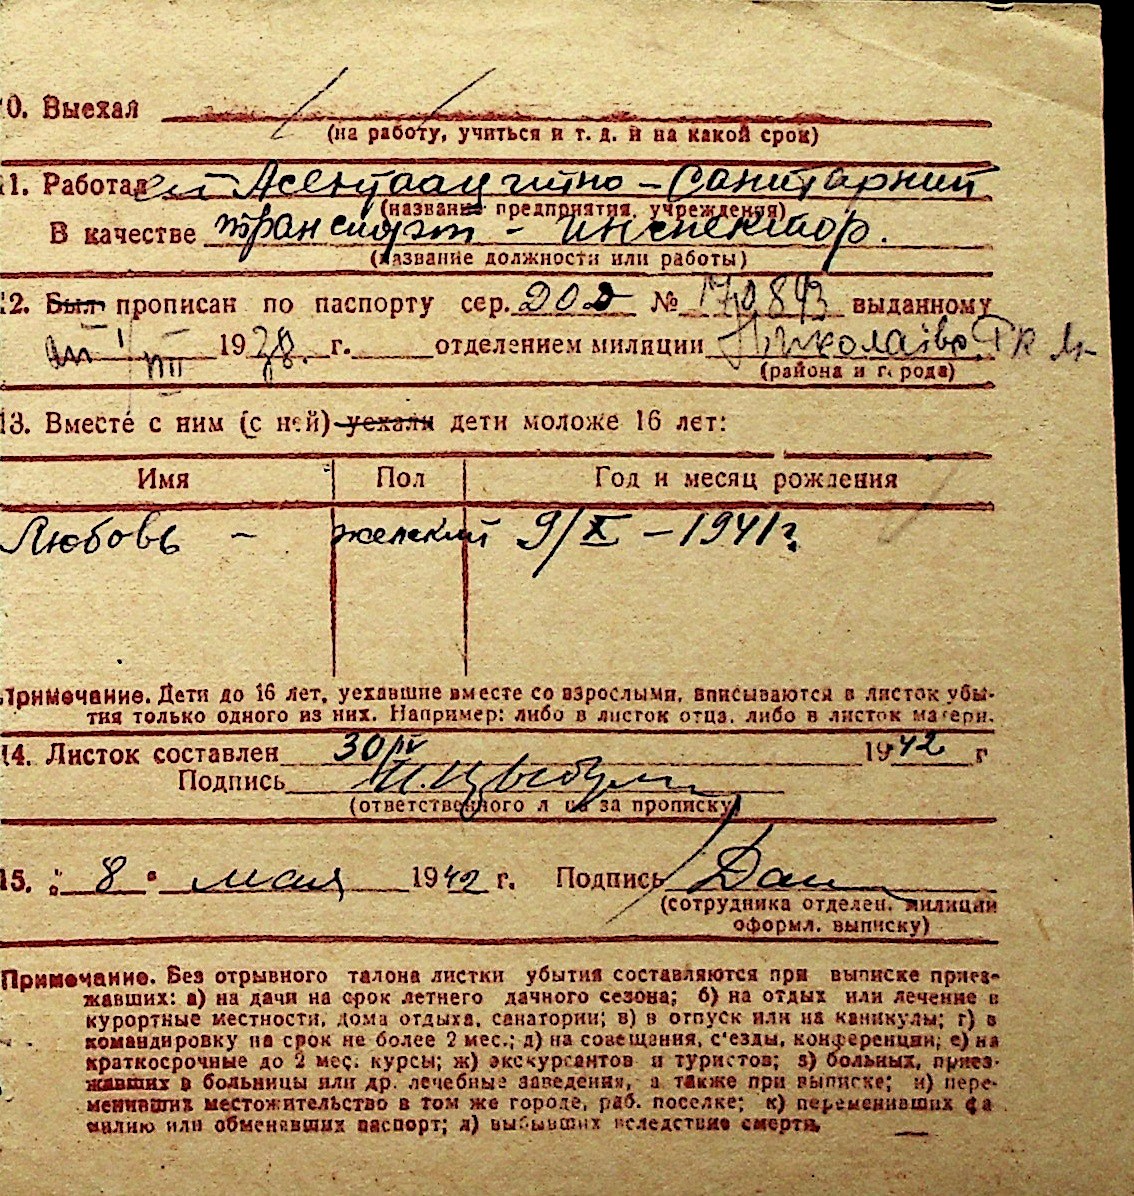 10. Выехал
(на работу, учиться и т. д. и на какой срок)
11. Работал Асенизационно-Санитарний
(название предприятия, учреждения)
В качестве транспорт - инспектор.
(название должности или работы)
12. Был прописан по паспорту сер. № 170843 выданному
VIII 1938. г. отделением милиции
(района и города)
13. Вместе с ним (с ней) уехали дети моложе 16 лет:
Имя Пол Год и месяц рождения
Любовь - женский 9/X - 1941 г.
Примечание. Дети до 16 лет, уехавшие вместе со взрослыми, вписываются в листок убы-
тия только одного из них. Например: либо в листок отца, либо в листок матери.
14. Листок составлен 30/IV 1942 г
Подпись
(ответственного лица за прописку)
15. „8" мая 1942 г. Подпись
(сотрудника отделен. милиции
оформл. выписку)
Примечание. Без отрывного талона листки убытия составляются при выписке приез-
жавших: а) на дачи на срок летнего дачного сезона; б) на отдых или лечение в
курортные местности, дома отдыха, санатории; в) в отпуск или на каникулы; г) в
командировку на срок не более 2 мес.; д) на совещания, с'езды, конференции; е) на
краткосрочные до 2 мес. курсы; ж) экскурсантов и туристов; з) больных, приез-
жавших в больницы или др. лечебные заведения, а также при выписке; и) пере-
менивших местожительство в том же городе, раб. поселке; к) переменивших фа
милию или обменявших паспорт; л) выбывших вследствие смерти.